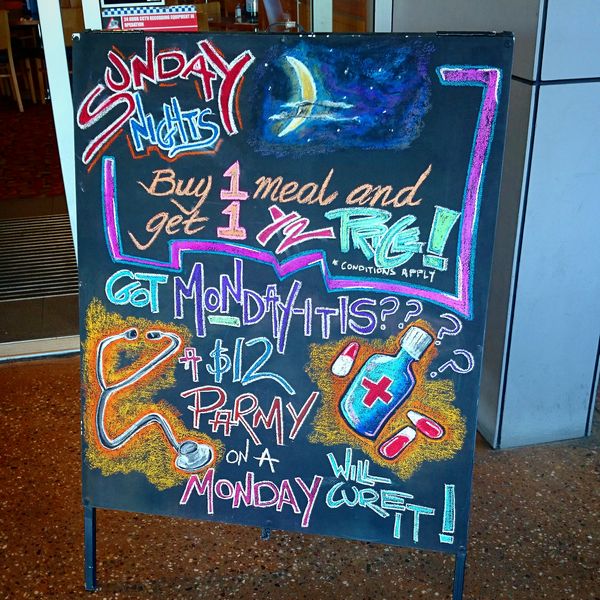 24 HOUR CCTV RECORDING EQUIPMENT IN
OPERATION
SUNDAY
NIGHTS
Buy 1 meal and
get 1 1/2 PRICE!
* CONDITIONS APPLY
GOT MONDAY-ITIS????
A $12
PARMY
ON A
MONDAY
WILL
CURE
IT!